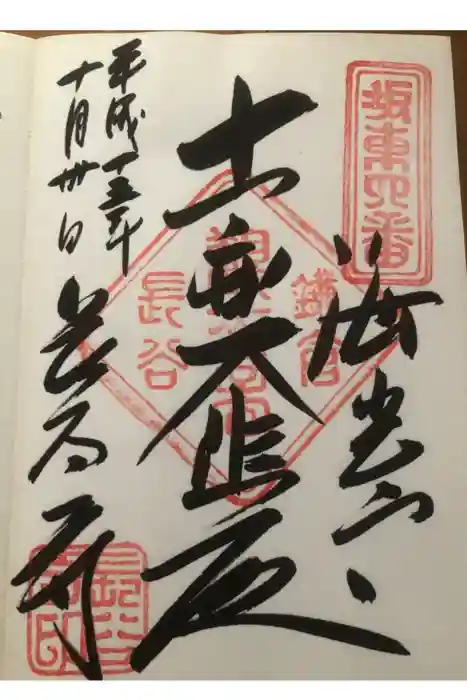 坂東四番
海光山
十一面大悲殿
鎌倉
長谷
平成十三年
十月卅日
長谷寺
長谷寺印